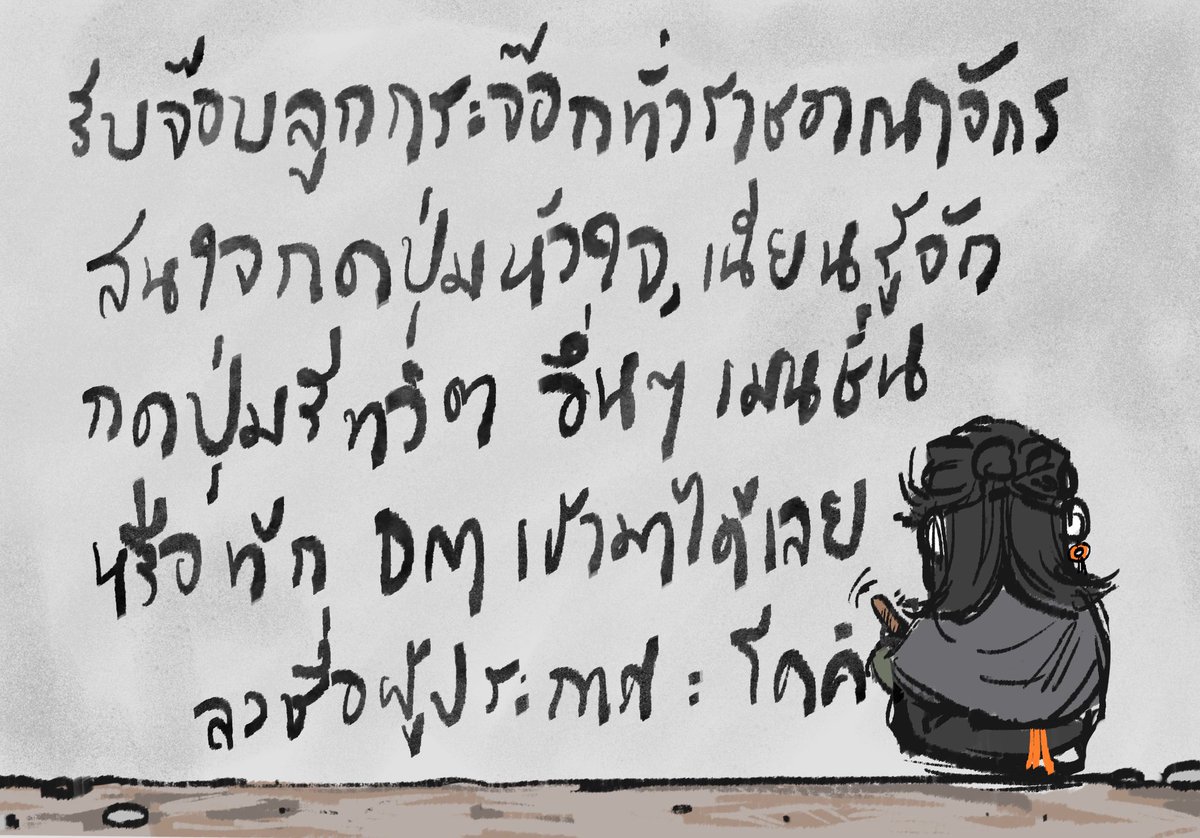 รับจ๊อบลูกกระจ๊อกทั่วราชอาณาจักร
สนใจกดปุ่มหัวใจ, เนียนรู้จัก
กดปุ่มรีทวิ่ต อื่นๆ เมนชั่น
หรือทัก DM เข้ามาได้เลย
ลงชื่อผู้ประกาศ : โคคิ